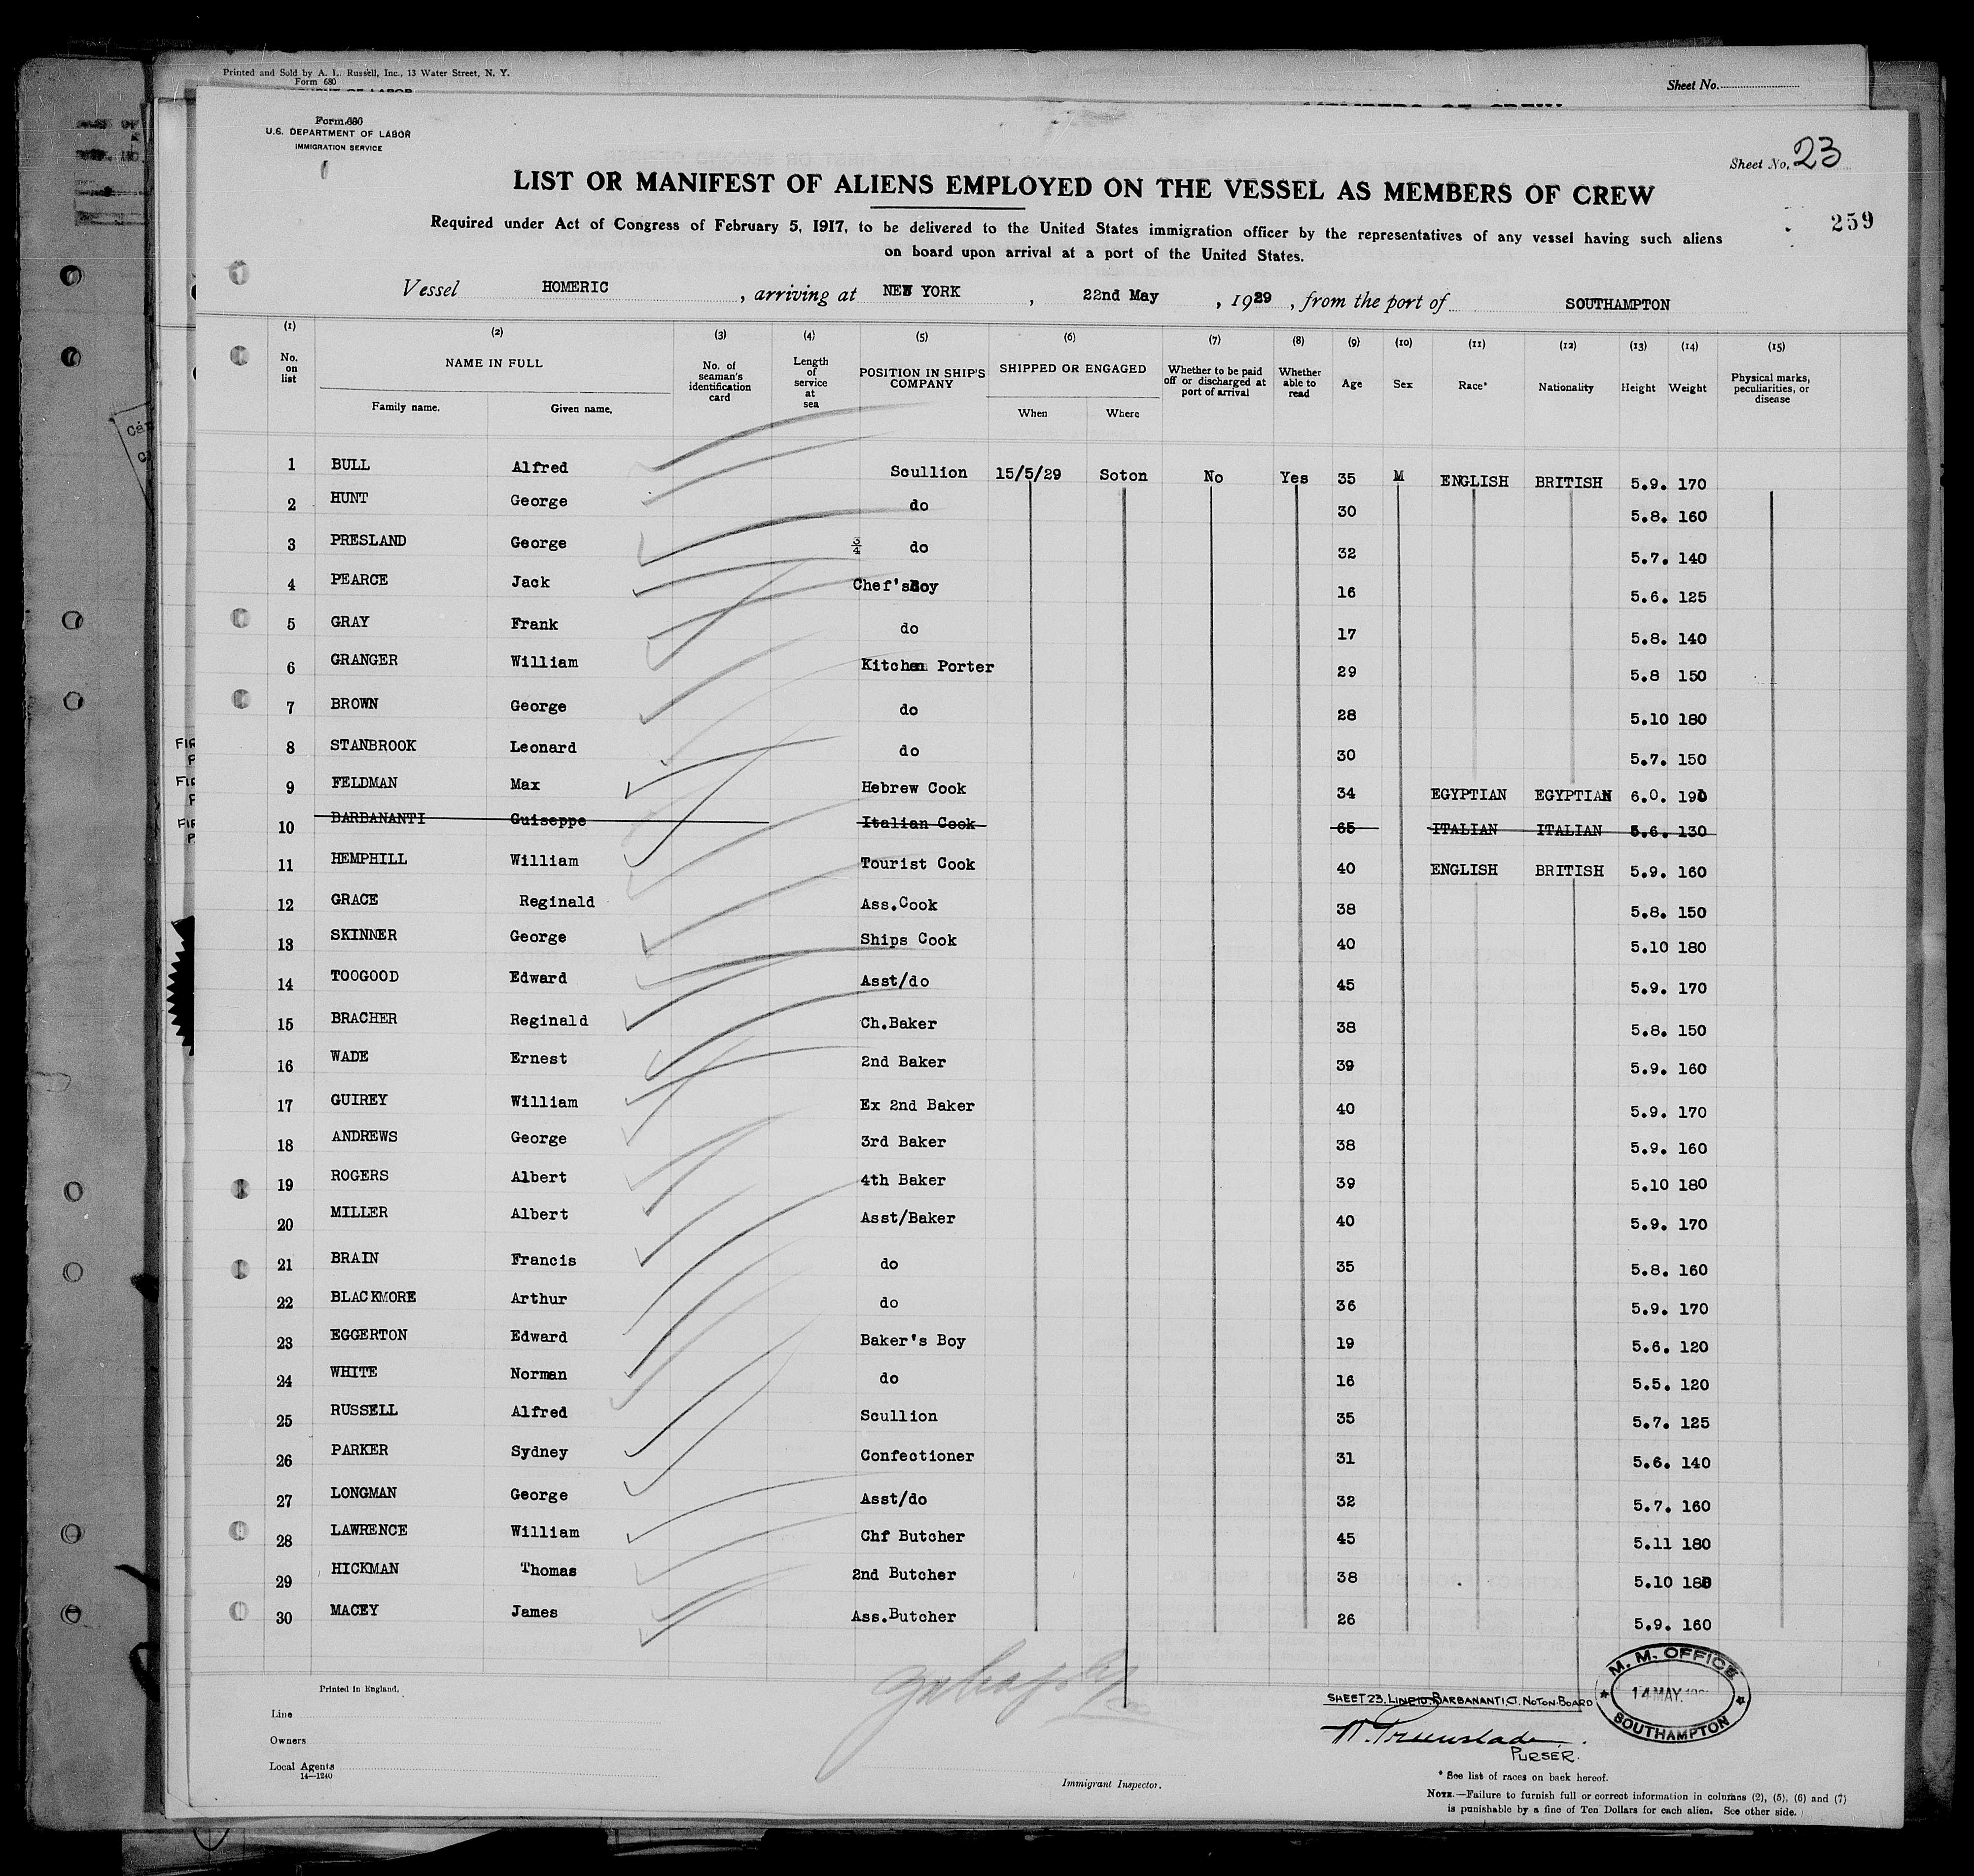 Printed and Sold by A. L. Russell, Inc., 13 Water Street, N. Y.
Form 680
Sheet No.
Form 680
U.S. DEPARTMENT OF LABOR
IMMIGRATION SERVICE
Sheet No. 23
LIST OR MANIFEST OF ALIENS EMPLOYED ON THE VESSEL AS MEMBERS OF CREW
259
Required under Act of Congress of February 5, 1917, to be delivered to the United States immigration officer by the representatives of any vessel having such aliens
on board upon arrival at a port of the United States.
Vessel HOMERIC, arriving at NEW YORK, 22nd May, 1929, from the port of SOUTHAMPTON
(1) (2) (3) (4) (5) (6) (7) (8) (9) (10) (11) (12) (13) (14) (15)
No. on list NAME IN FULL Family name. Given name. No. of seaman's identification card Length of service at sea POSITION IN SHIP'S COMPANY SHIPPED OR ENGAGED When Where Whether to be paid off or discharged at port of arrival Whether able to read Age Sex Race* Nationality Height Weight Physical marks, peculiarities, or disease
1 BULL Alfred Scullion 15/5/29 Soton No Yes 35 M ENGLISH BRITISH 5.9. 170
2 HUNT George do 30 5.8. 160
3 PRESLAND George 3/4 do 32 5.7. 140
4 PEARCE Jack Chef's Boy 16 5.6. 125
5 GRAY Frank do 17 5.8. 140
6 GRANGER William Kitchen Porter 29 5.8 150
7 BROWN George do 28 5.10 180
8 STANBROOK Leonard do 30 5.7. 150
9 FELDMAN Max Hebrew Cook 34 EGYPTIAN EGYPTIAN 6.0. 190
10 BARBANANTI Guiseppe Italian Cook 65 ITALIAN ITALIAN 5.6. 130
11 HEMPHILL William Tourist Cook 40 ENGLISH BRITISH 5.9. 160
12 GRACE Reginald Ass.Cook 38 5.8. 150
13 SKINNER George Ships Cook 40 5.10 180
14 TOOGOOD Edward Asst/do 45 5.9. 170
15 BRACHER Reginald Ch.Baker 38 5.8. 150
16 WADE Ernest 2nd Baker 39 5.9. 160
17 GUIREY William Ex 2nd Baker 40 5.9. 170
18 ANDREWS George 3rd Baker 38 5.9. 160
19 ROGERS Albert 4th Baker 39 5.10 180
20 MILLER Albert Asst/Baker 40 5.9. 170
21 BRAIN Francis do 35 5.8. 160
22 BLACKMORE Arthur do 36 5.9. 170
23 EGGERTON Edward Baker's Boy 19 5.6. 120
24 WHITE Norman do 16 5.5. 120
25 RUSSELL Alfred Scullion 35 5.7. 125
26 PARKER Sydney Confectioner 31 5.6. 140
27 LONGMAN George Asst/do 32 5.7. 160
28 LAWRENCE William Chf Butcher 45 5.11 180
29 HICKMAN Thomas 2nd Butcher 38 5.10 180
30 MACEY James Ass.Butcher 26 5.9. 160
M. M. OFFICE
14 MAY
SOUTHAMPTON
Printed in England.
SHEET 23. LINE 10. BARBANANTI, G. NOT ON BOARD
PURSER.
Line
Owners
Local Agents
14—1240
Immigrant Inspector.
* See list of races on back hereof.
NOTE.—Failure to furnish full or correct information in columns (2), (5), (6) and (7)
is punishable by a fine of Ten Dollars for each alien. See other side.